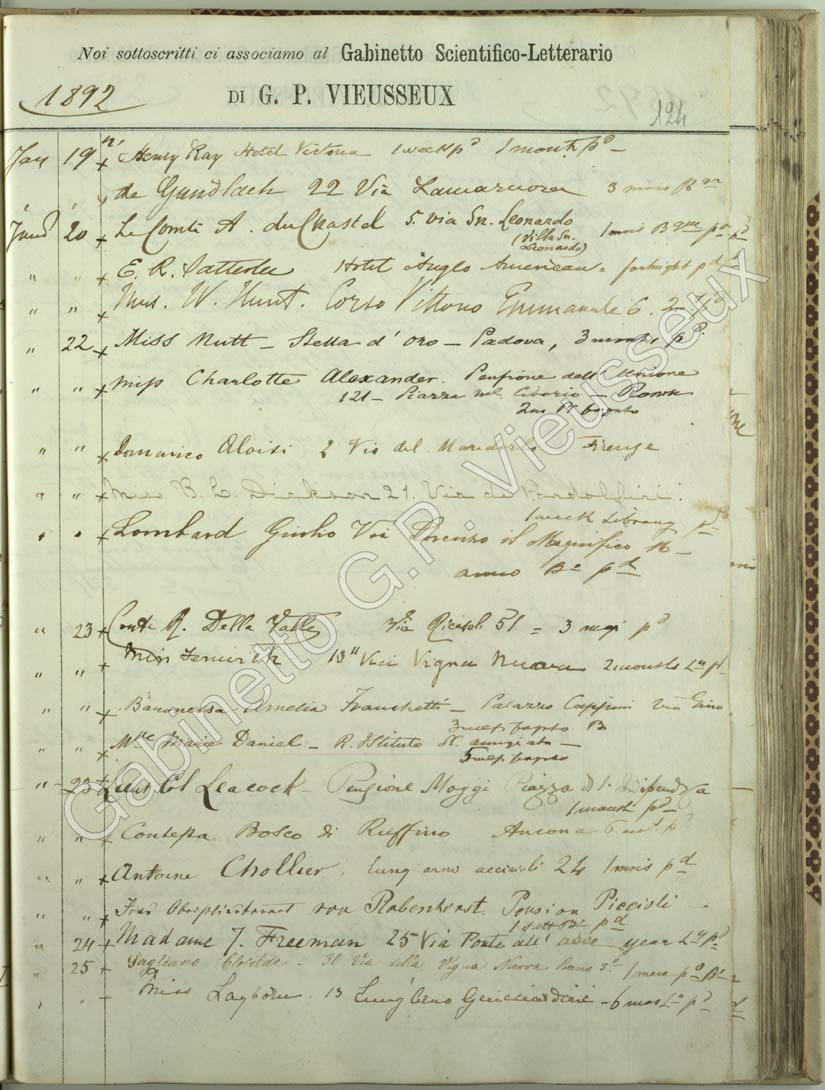 Noi sottoscritti ci associamo al Gabinetto Scientifico-Letterario
1892
DI G. P. VIEUSSEUX
124
Jan 19 Henry Ray Hotel Victoria 1 week pd 1 month pd
de Gundlach 22 Via Lamarmora 3 mois
20 Le Comte A. du Chastel 5. via Sn. Leonardo 1 mois B
(Villa Sn. Leonardo)
" " E. R. Satterlee Hotel Anglo American fortnight pd
" " Mrs. W. Hunt. Corso Vittorio Emmanuele 6.
" 22 Miss Nutt - Stella d'oro - Padova, 3 months pd.
" " Miss Charlotte Alexander. Pensione dell'
121 - Piazza - Rome
" " Domenico Aloisi 2 Via del Mandorlo Firenze
" " Miss B. L. Dickson 21. Via de Pandolfini.
1 week Library pd
" " Lombard Giulio Via Lorenzo il Magnifico
anno pd
" 23 Conte R. Della Valle Via Ricasoli 51 = 3 mesi pd
" " Miss Fenwick 13 Vigna Nuova 2 months
" " Baronessa Amelia Franchetti - Palazzo Capponi via Gino
3 mesi pagato B
" " Mlle Marie Daniel - R. Istituto SS. Annunziata -
mesi pagato
" 23 Lieut Col Leacock - Pensione Maggi Piazza d'Indipendenza
1 month pd
" " Contessa Bosco di Ruffino Ancona 6
" " Antoine Chollier. Lung arno acciaioli 24 1 mois pd
" " Frau von Rabenhorst. Pension Piccioli
" 24 Madame J. Freeman 25 Via Ponte all' asse year
25 Gagliano Clotilde - 30 Via della Vigna Nuova Piano 3o 1 mese
" " Miss Layborn. 13 Lung'Arno Guicciardini - 6 mos
Gabinetto G.P. Vieusseux